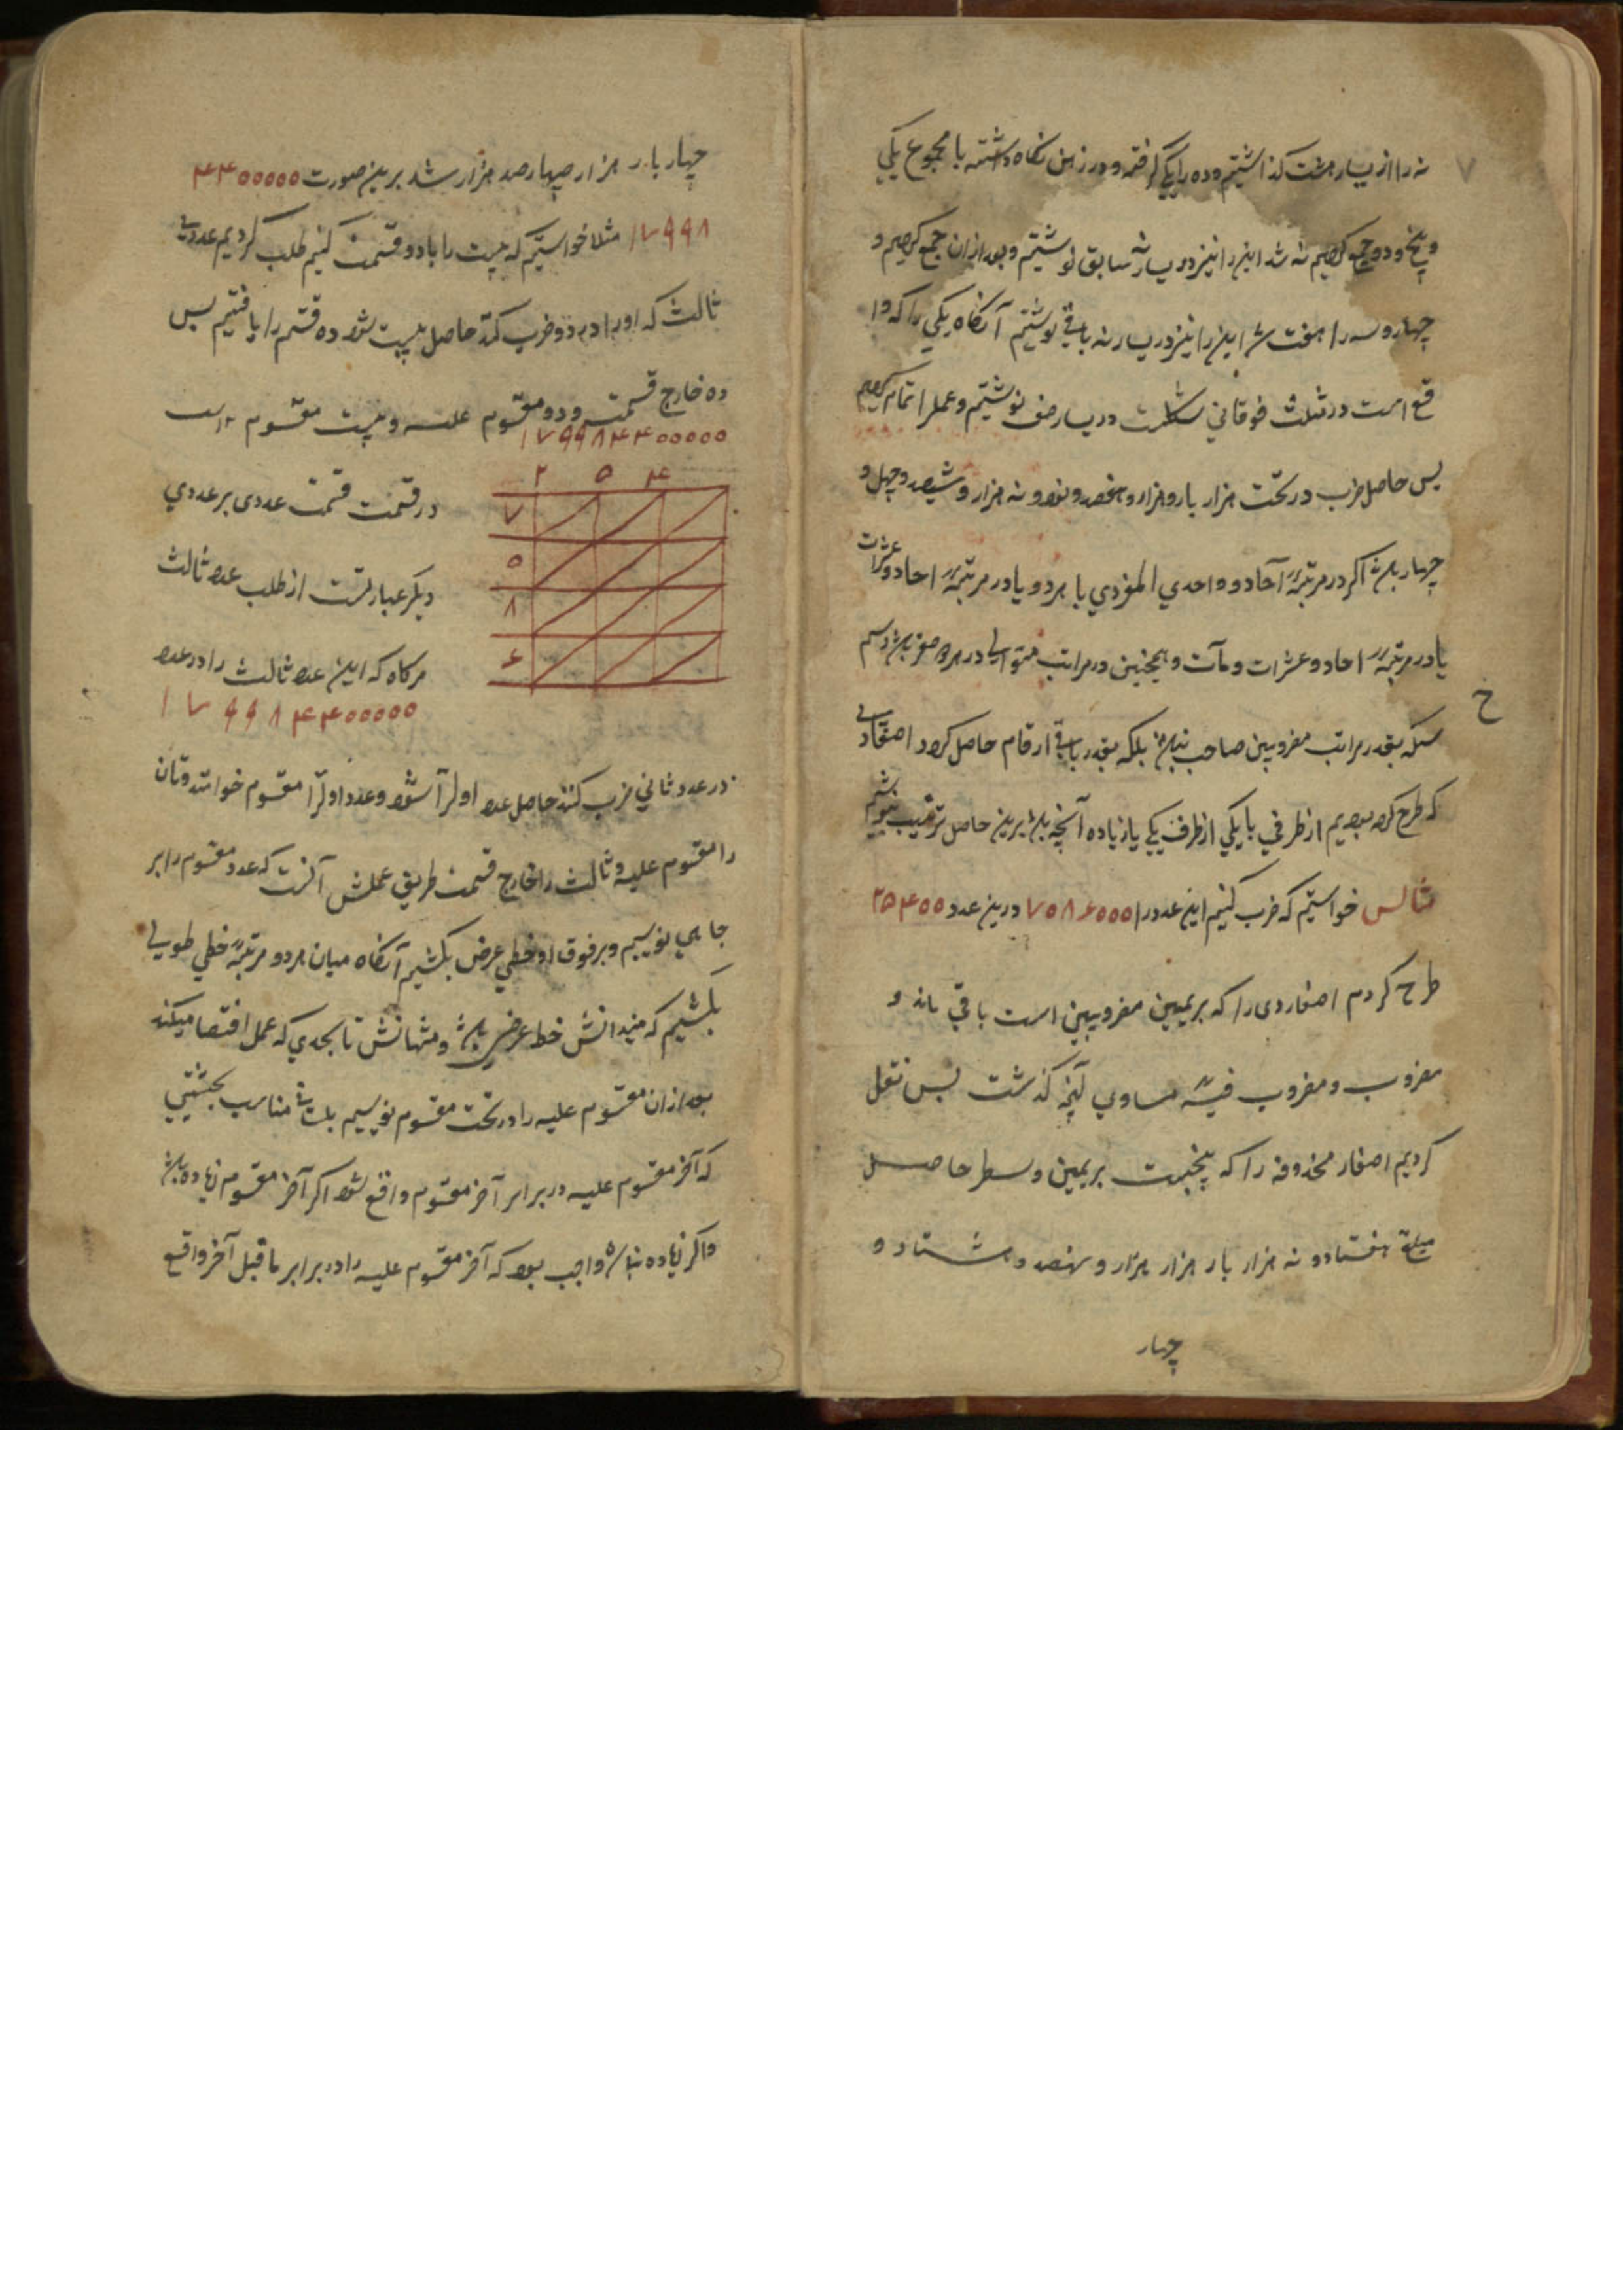 نه را از یسار هشت گذاشتیم و ده را یکی گرفتمه و در ذهن نگاه داشتمه با مجموع یکی
و پنج و دو جمع کردیم نه شد این را نیز در یسار نه سابق نوشتیم و بعد از آن جمع کردیم و
چهار و سه را هفت شد این را نیز در یسار نه باقی نوشتیم آنگاه یکی را که وا
قع است در مثلث فوقانی شکلست در یسار صف نوشتیم و عمل را تمام کردیم
پس حاصل ضرب در تحت هزار بار و هزار و هفصد و نود و نه هزار و ششصد و چهل و
چهار باشد اگر در مرتبهٔ آحاد و واحدي المفردي یا هر دو یا در مرتبهٔ احاد و عشرات
یا در مرتبهٔ احاد و عشرات و مآت و همچنین در مراتب متوالی در هر دو صفر باشد
بلکه بقدر باقی ارقام حاصل کرد اصفاری
که طرح کرده بودیم از طرفي یا یکي از طرف یکی یا زیاده آنچه باشد برین حاصل ترتیب نویسیم
مثالس خواستیم که ضرب کنیم این عدد را ۷۵۸۶۰۰۰ درین عدد ۲۵۴۰۰
طرح کردم اصفاردی را که بریمین مضروبین است باقی ماند و
مضروب و مضروب فیه مساوي آنچه گذشت پس نقل
کردیم اصفار محذوفه را که پنجست بریمین وسطر حاصل
مبلغ هفتاد و نه هزار بار هزار هزار و نهصد و هشتاد و
چهار
چهار بار هزار چهار صد هزار شد برین صورت ۴۴۰۰۰۰۰
۱۷۹۹۸ مثلا خواستیم که بیست را بادو قسمت کنیم طلب کردیم عددی
ثالث که اورا در دو ضرب کند حاصل بیست شود ده قسم را یافتیم پس
ده خارج قسمت و دو مقسوم علیه و بیست مقسوم است
۱۷۹۹۸۴۴۰۰۰۰۰
۲ ۵ ۴
۷
۵
۸
۶
در قسمت قسمت عددی بر عددي
دیگر عبارتست از طلب عدد ثالث
هرگاه که این عدد ثالث را در عدد
۱۷۹۹۸۴۴۰۰۰۰۰
در عدد ثاني ضرب کنند حاصل عدد اول را شود و عدد اول را مقسوم خوانند و ثان
را مقسوم علیه و ثالث را خارج قسمت طریق عملش آنست که عدد مقسوم را بر
جایي نویسیم و بر فوق او خطي عرض بکشیم آنگاه میان هر دو مرتبهٔ خطي طویلی
بکشیم که مبدانش خط عرض باشد و منتهانش تا بحدي که عمل اقتضا میکند
بعد از آن مقسوم علیه را در تحت مقسوم نویسیم مناسب بحیثیتي
که آخر مقسوم علیه در برابر آخر مقسوم واقع شود اگر آخر مقسوم زیاده باشد
و اگر زیاده نباشد واجب بود که آخر مقسوم علیه را در برابر ماقبل آخر واقع